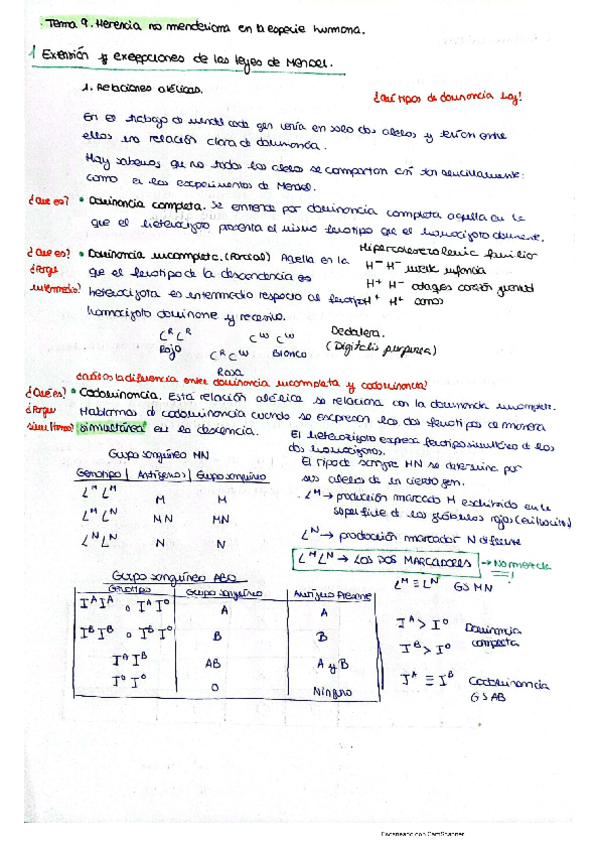 Tema 9. Herencia no mendeliana en la especie humana.
1 Extensión y excepciones de las leyes de Mendel.
1. Relaciones alélicas.
¿Qué tipos de dominancia hay?
En el trabajo de mendel cada gen tenía en solo dos alelos, y tenían entre
ellos una relación clara de dominancia.
Hoy sabemos que no todos los alelos se comportan así tan sencillamente
como en los experimentos de Mendel.
¿Qué es? • Dominancia completa. Se entiende por dominancia completa aquella en la
que el heterocigoto presenta el mismo fenotipo que el homocigoto dominante.
¿Qué es? • Dominancia incompleta. (Parcial) Aquella en la
¿Porque que el fenotipo de la descendencia es
intermedio? heterocigota es intermedio respecto al fenotipo
homocigoto dominante y recesivo.
Hipercolesterolemia familiar
H⁻ H⁻ muerte infancia
H⁺ H⁻ ataques corazón juventud
H⁺ H⁺ sanos
C^R C^R C^W C^W Dedalera.
Rojo C^R C^W Blanco (Digitalis purpurea)
Rosa
¿cuál es la diferencia entre dominancia incompleta y codominancia?
¿Qué es? • Codominancia. Esta relación alélica se relaciona con la dominancia incomplete.
¿Porque Hablamos de codominancia cuando se expresan los dos fenotipos de manera
simultánea? simultánea en la descencia.
El heterocigoto expresa fenotipo simultáneo de los
dos homocigotos.
Grupo sanguíneo MN
Genotipo | Antígenos | Grupo sanguíneo
L^M L^M M M
L^M L^N MN MN
L^N L^N N N
El tipo de sangre MN se determina por
sus alelos de un cierto gen.
. L^M → producción marcador M en la
superficie de los glóbulos rojos (eritrocitos)
L^N → producción marcador N diferente
L^M L^N → LOS DOS MARCADORES → No mezcla
L^M ≡ L^N GS MN
Grupo sanguíneo ABO
Genotipo Grupo sanguíneo Antígeno Presente
I^A I^A o I^A I^O A A
I^B I^B o I^B I^O B B
I^A I^B AB A y B
I^O I^O O Ninguno
I^A > I^O Dominancia
I^B > I^O completa
I^A ≡ I^B Codominancia
GS AB
Escaneado con CamScanner